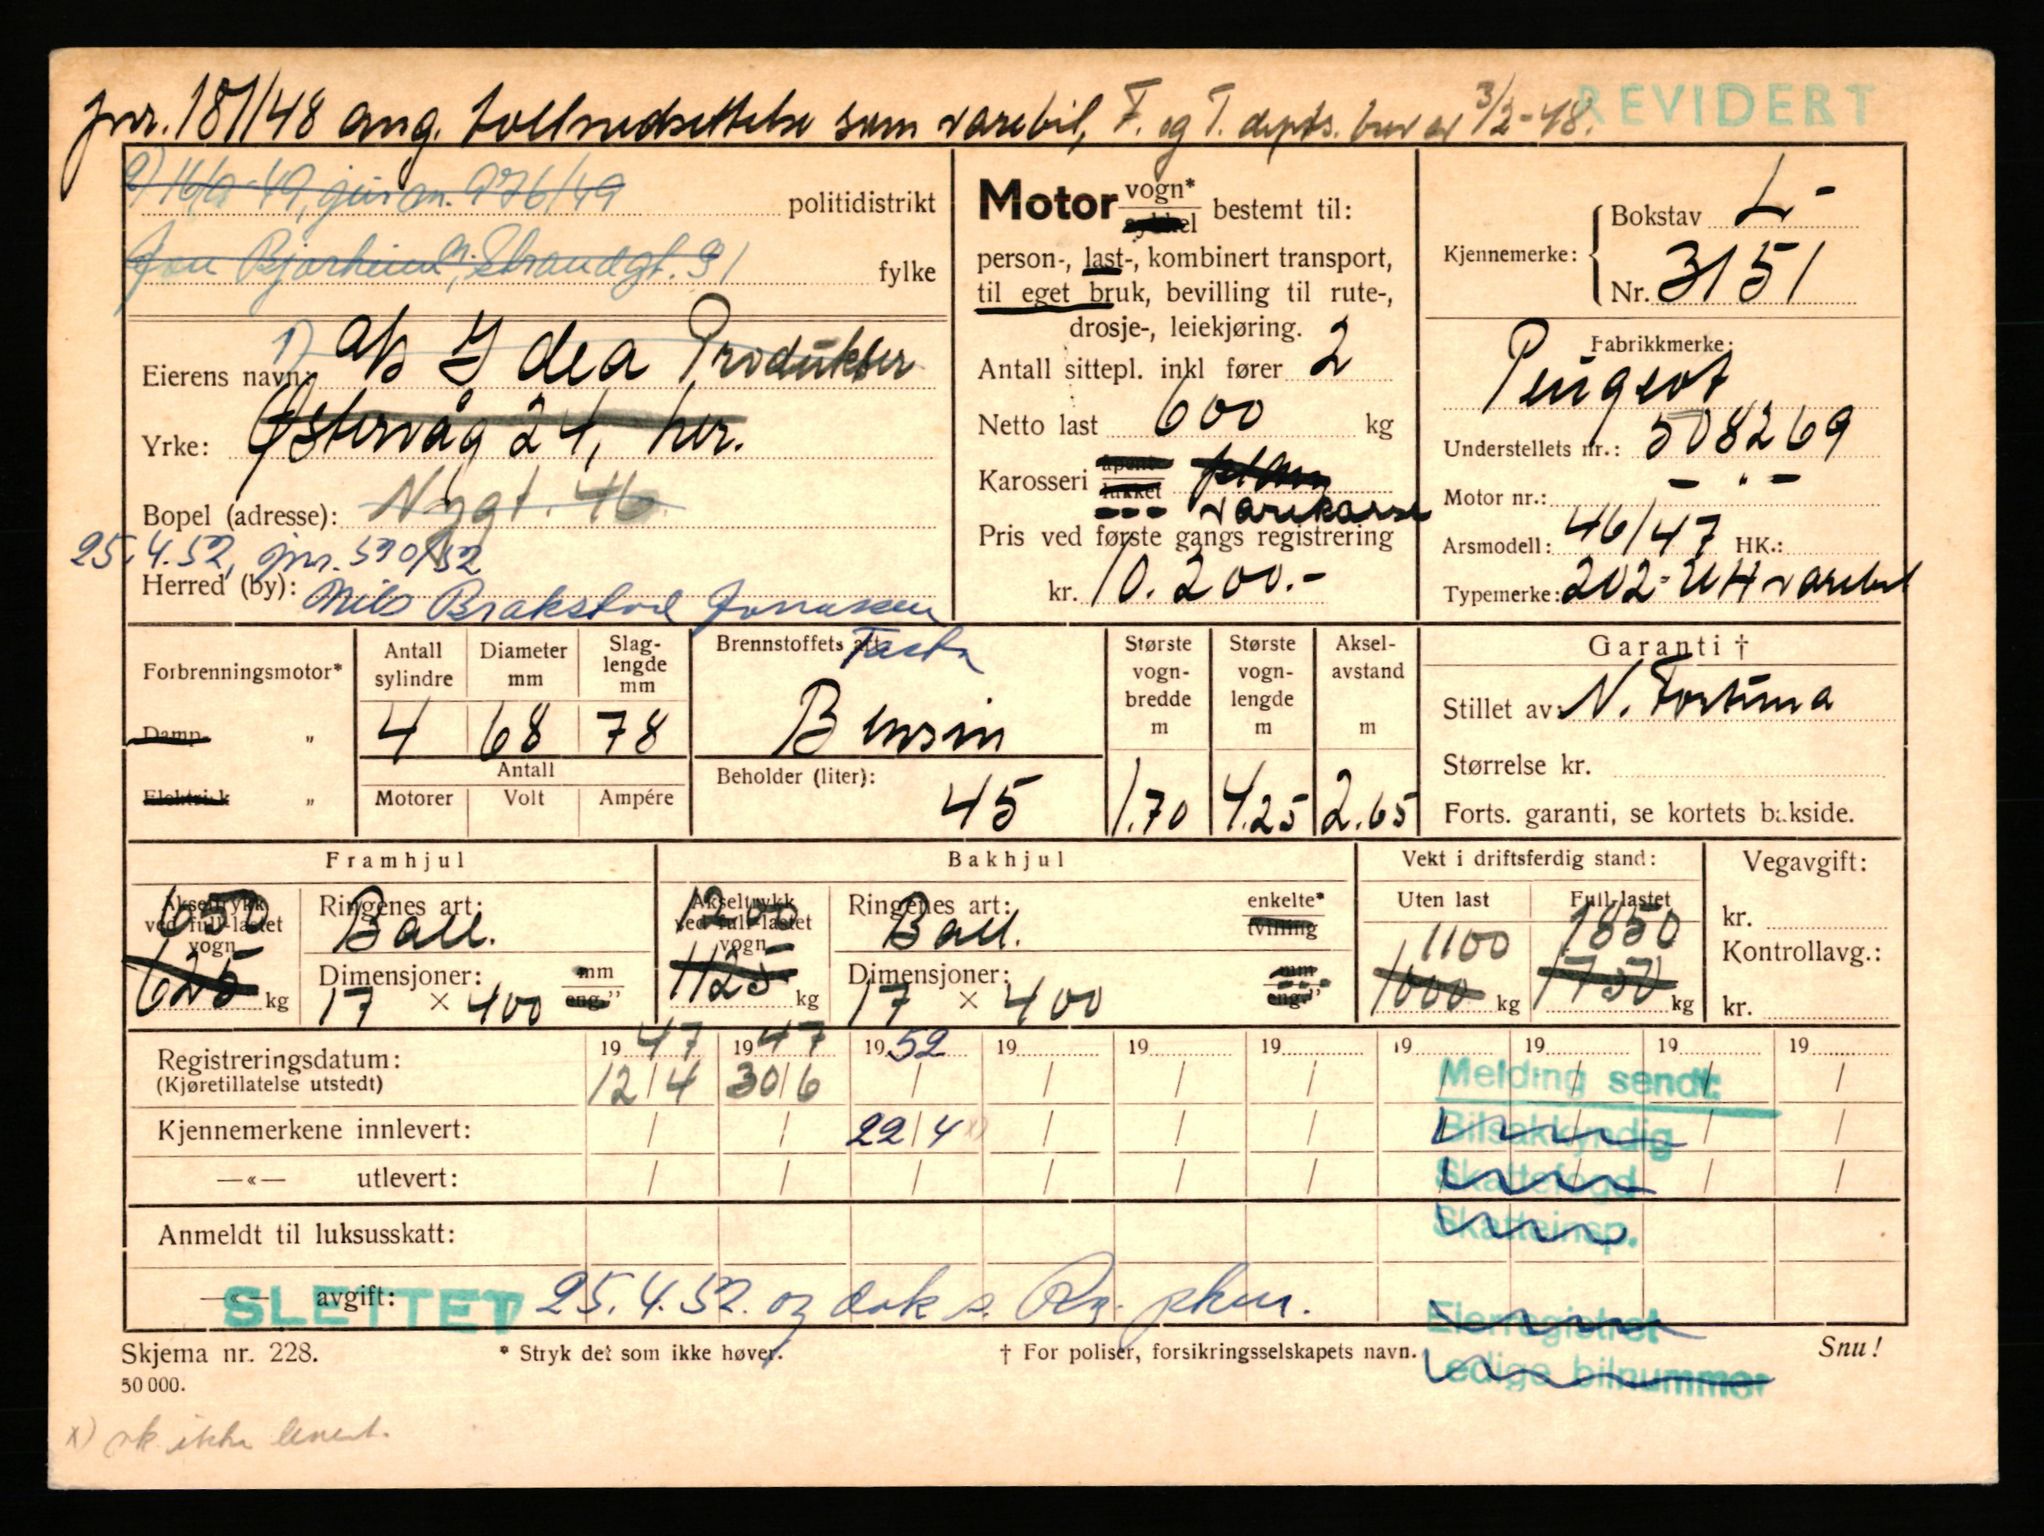 jnr. 181/48 ang. tollnedsettelse som varebil, F. og T. depts. brev av 3/2-48.
REVIDERT
2) 16/9-49, jnr. 976/49
politidistrikt
Jon Bjorheim, Strandgt. 91
fylke
1)
Eierens navn: A/S Ydea Produkter
Yrke: Østervåg 24, her.
Bopel (adresse): Nygt. 46
25.4.52, jnr. 590/52
Herred (by): Nils Brakstad Jonassen
Tasta
Motor vogn* sykkel bestemt til:
person-, last-, kombinert transport,
til eget bruk, bevilling til rute-,
drosje-, leiekjøring.
Antall sittepl. inkl fører 2
Netto last 600 kg
Karosseri åpent lukket plan
varekasse
Pris ved første gangs registrering
kr. 10.200.-
Kjennemerke: Bokstav L-
Nr. 3151
Fabrikkmerke:
Peugeot
Understellets nr.: 508269
Motor nr.: - " -
Årsmodell: 46/47 HK.:
Typemerke: 202-UH varebil
Forbrenningsmotor*
Damp- "
Elektrisk "
Antall sylindre
4
Diameter mm
68
Slag-
lengde
mm
78
Antall
Motorer Volt Ampére
Brennstoffets art:
Bensin
Beholder (liter):
45
Største
vogn-
bredde
m
1.70
Største
vogn-
lengde
m
4.25
Aksel-
avstand
m
2.65
Garanti †
Stillet av: N. Fortuna
Størrelse kr.
Forts. garanti, se kortets bakside.
Framhjul
Akseltrykk
ved full-lastet
vogn
650
625 kg
Ringenes art:
Ball.
Dimensjoner: mm
17 × 400 eng."
Bakhjul
Akseltrykk
ved full-lastet
vogn
1200
1125 kg
Ringenes art:
Ball.
enkelte*
tvilling
Dimensjoner: mm
17 × 400 eng."
Vekt i driftsferdig stand:
Uten last Full-lastet
1100 1850
1000 kg 1750 kg
Vegavgift:
kr.
Kontrollavg.:
kr.
Registreringsdatum: 19 47 19 47 19 52 19 19 19 19 19 19 19
(Kjøretillatelse utstedt) 12/4 30/6 / / / / / / / /
Kjennemerkene innlevert: / / 22/4 x) / / / / / / /
—«— utlevert: / / / / / / / / / /
Anmeldt til luksusskatt:
—«— avgift:
SLETTET 25.4.52.
Melding sendt:
Bilsakkyndig
Skattefogd
Skatteinsp.
Eierregistret
Ledige bilnummer
Skjema nr. 228.
50 000.
* Stryk det som ikke høver.
† For poliser, forsikringsselskapets navn.
Snu!
x) vk. ikke levert.